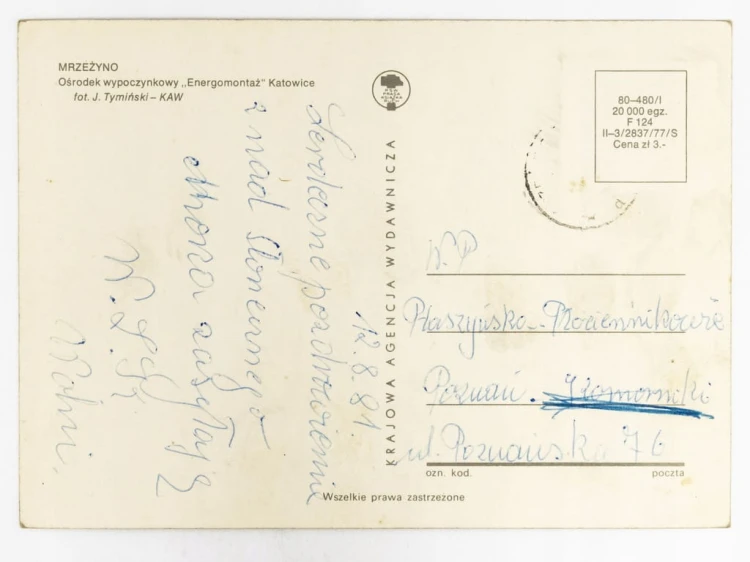 MRZEŻYNO
Ośrodek wypoczynkowy „Energomontaż” Katowice
fot. J. Tymiński – KAW
Serdeczne pozdrowienia
z nad słonecznego
morza zasyłają
12.8.81.
KRAJOWA AGENCJA WYDAWNICZA
80–480/I
20 000 egz.
F 124
II–3/2837/77/S
Cena zł 3.-
W.P
Poznań. Komorniki
ul. Poznańska 76
ozn. kod. poczta
Wszelkie prawa zastrzeżone